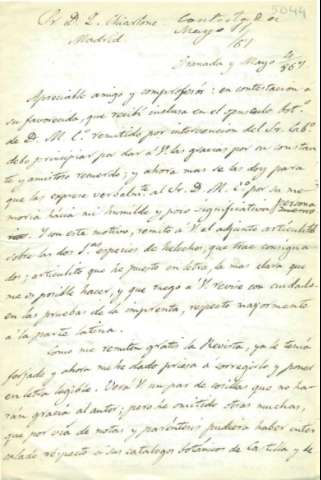 5044
Sr. D. Q. Chiarlone. Contest. 9 de
Madrid Mayo /61
Granada y Mayo 4/861
Apreciable amigo y comprofesor: en contestacion a
su favorecida, que recibí inclusa en el opusculo bot.º
de D. M. C.º remitido por intervencion del Sr. Cab.º
debo principiar por dar á V. las gracias por su constan
te y amistoso recuerdo; y ahora mas se las doy para
que las esprese verbalmte. al Sr. D. M. C.º por su me
moria hácia mi humilde y poco significativa persona
Y con este motivo, remito á V. el adjunto articulito
sobre las dos especies de helechos, que trae consigna
dos; articulito que he puesto en letra, la mas clara que
me es posible hacer, y que ruego á V. revise con cuidado
en las pruebas de la imprenta, respecto mayormente
á la parte latina.
Como me remiten gratis la Revista, ya le tenía
forjado y ahora me he dado priesa á corregirlo y poner
en letra legible. Verá V. un par de cosillas que no ha-
rán gracia al autor; pero he omitido otras muchas,
que por via de notas y paréntesis pudiera haber inter
calado respecto á sus catalogos botánicos de Castilla y de